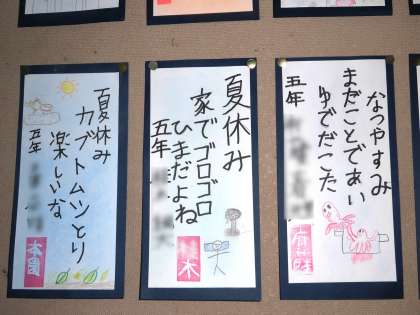 なつやすみ
まだことであい
ゆでだこた
五年
夏休み
家でゴロゴロ
ひまだよね
五年
夏休み
カブトムツとり
楽しいな
五年